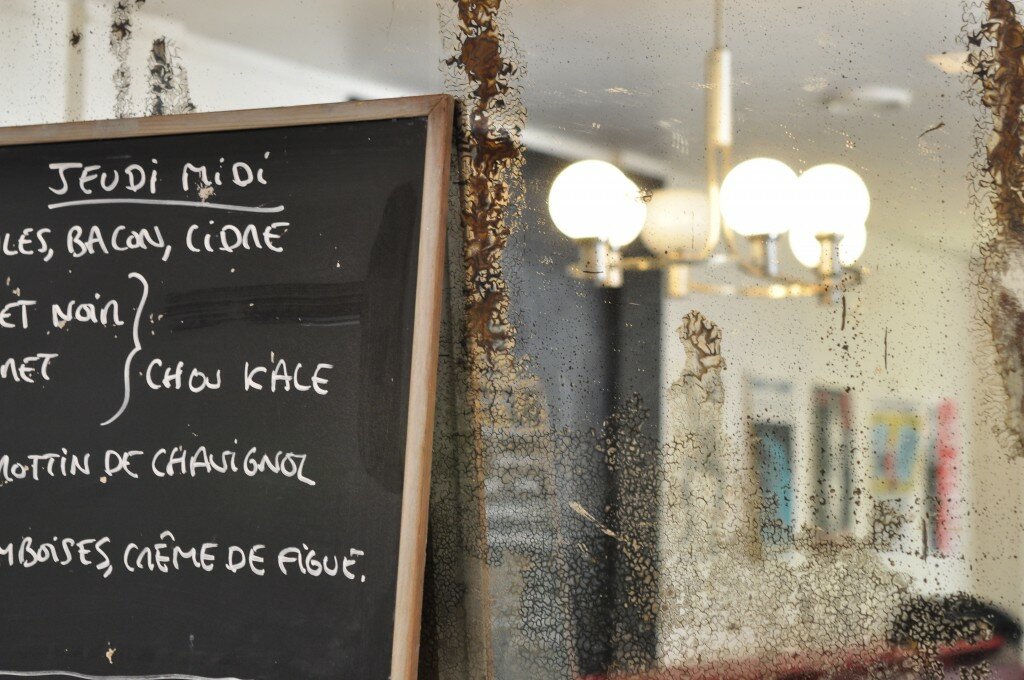 JEUDI MIDI
LES, BACON, CIDRE
ET NOIR
CHOU K'ALE
DE CHAVIGNOL
MBOISES, CRÊME DE FIGUE.